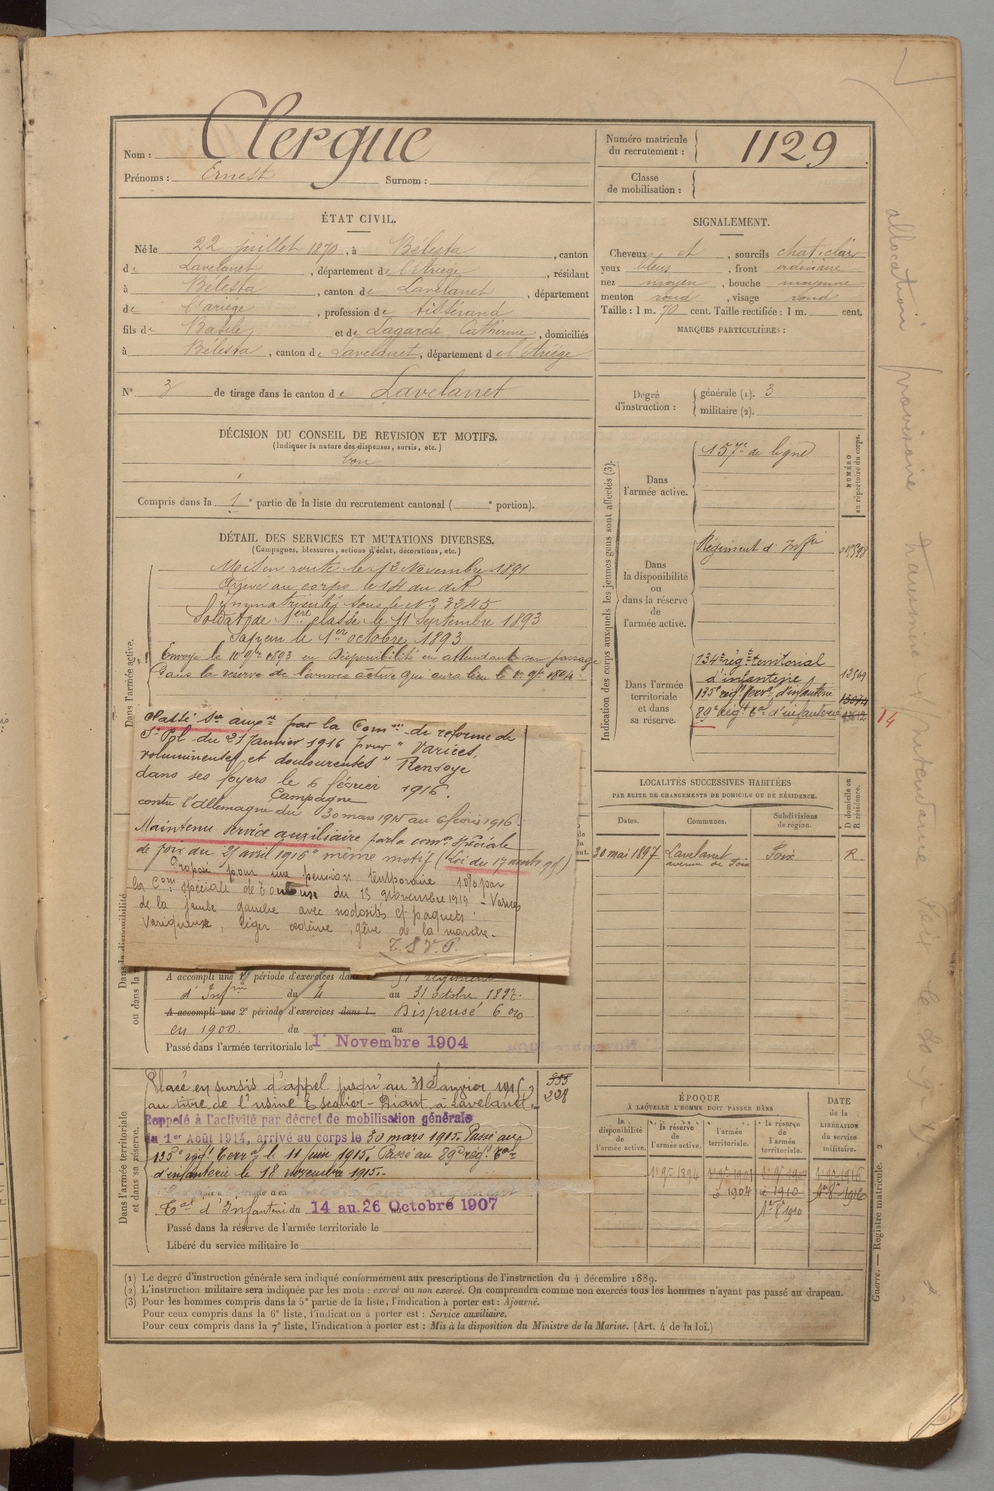 Nom : Clergue
Prénoms : Ernest Surnom :
Numéro matricule du recrutement : 1129
Classe de mobilisation :
ÉTAT CIVIL.
Né le 22 juillet 1870, à Bélesta, canton
de Lavelanet, département de l'Ariège, résidant
à Bélesta, canton de Lavelanet, département
de l'Ariège, profession de tisserand
fils de Basile et de Lagarde Catherine, domiciliés
à Bélesta, canton de Lavelanet, département de l'Ariège
N° 3 de tirage dans le canton de Lavelanet
SIGNALEMENT.
Cheveux et, sourcils chat. clair
yeux bleus, front ordinaire
nez moyen, bouche moyenne
menton rond, visage rond
Taille : 1 m. 70 cent. Taille rectifiée : 1 m. cent.
MARQUES PARTICULIÈRES :
Degré d'instruction : générale (1). 3
militaire (2).
DÉCISION DU CONSEIL DE REVISION ET MOTIFS.
(Indiquer la nature des dispenses, sursis, etc.)
bon
Compris dans la 1e partie de la liste du recrutement cantonal ( e portion).
DÉTAIL DES SERVICES ET MUTATIONS DIVERSES.
(Campagnes, blessures, actions d'éclat, décorations, etc.)
Dans l'armée active.
Mis en route le 13 Novembre 1891
Arrivé au corps le 14 du dit
Immatriculé sous le No 3245
Soldat de 1ere classe le 11 Septembre 1893
Sapeur le 1er octobre 1893
Envoyé le en Disponibilité en attendant son passage
Dans la réserve de l'armée active qui aura lieu le 1894
Classé Sce auxre par la Comon de réforme de
St Pol du 21 Janvier 1916 pour "Varices,
volumineuses et douloureuses" Renvoyé
dans ses foyers le 6 février 1916.
Campagne
contre l'Allemagne du 30 mars 1915 au 6 février 1916.
Maintenu service auxiliaire par la comon spéciale
de foix du 21 avril 1916 même motif (Loi du 17
Proposé pour une pension temporaire 10% par
la Com spéciale de Toulouse du 13 novembre 1919 - Varices
de la jambe gauche avec nodosités et paquets
variqueux, léger œdème, gêne de la marche.
T.S.V.P.
A accompli une 1re période d'exercices dans régiment
d'Infrie du 4 au 31 octobre 1897.
A accompli une 2e période d'exercices dans l Dispensé
en 1900. du au
Passé dans l'armée territoriale le 1er Novembre 1904
Dans l'armée territoriale et dans sa réserve.
Placé en sursis d'appel jusqu'au 31 Janvier 1915
au titre de l'usine Escolier-Biart à Lavelanet.
228
Rappelé à l'activité par décret de mobilisation générale
du 1er Août 1914, arrivé au corps le 30 mars 1915. Passé au
135e régt Terral le 11 juin 1915. Passé au 89e régt Teral
d'infanterie le 18 novembre 1915.
Tal d'Infanterie du 14 au 26 Octobre 1907
Passé dans la réserve de l'armée territoriale le
Libéré du service militaire le
Indication des corps auxquels les jeunes gens sont affectés (3).
NUMÉRO au répertoire du corps.
Dans l'armée active.
157e de ligne
Dans la disponibilité ou dans la réserve de l'armée active.
Régiment d'Infie
Dans l'armée territoriale et dans sa réserve.
134e régt territorial
d'infanterie
135e régt terral d'infanterie
89e régt Tal d'infanterie
14
LOCALITÉS SUCCESSIVES HABITÉES
PAR SUITE DE CHANGEMENTS DE DOMICILE OU DE RÉSIDENCE.
Dates. Communes. Subdivisions de région. D domicile ou R résidence.
30 mai 1897 Lavelanet Foix R.
avenue de Foix
ÉPOQUE
À LAQUELLE L'HOMME DOIT PASSER DANS
la disponibilité de l'armée active. la réserve de l'armée active. l'armée territoriale. la réserve de l'armée territoriale.
DATE de la LIBÉRATION du service militaire.
allocation provisoire transmise s/Intendance
Guerre. — Registre matricule. 2
(1) Le degré d'instruction générale sera indiqué conformément aux prescriptions de l'instruction du 4 décembre 1889.
(2) L'instruction militaire sera indiquée par les mots : exercé ou non exercé. On comprendra comme non exercés tous les hommes n'ayant pas passé au drapeau.
(3) Pour les hommes compris dans la 5e partie de la liste, l'indication à porter est : Ajourné.
Pour ceux compris dans la 6e liste, l'indication à porter est : Service auxiliaire.
Pour ceux compris dans la 7e liste, l'indication à porter est : Mis à la disposition du Ministre de la Marine. (Art. 4 de la loi.)